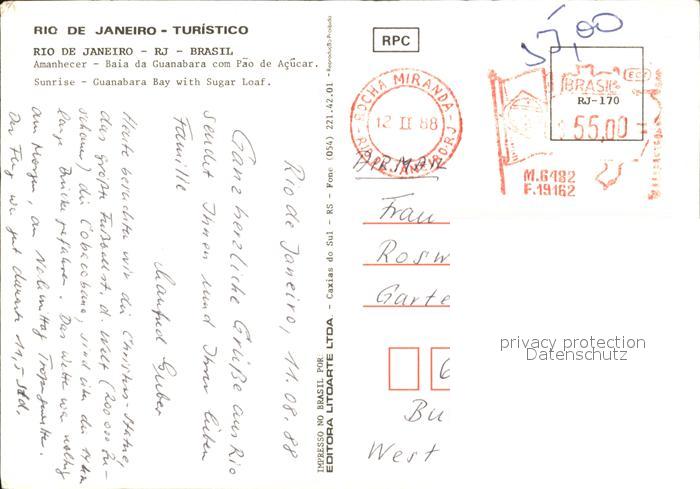 RIO DE JANEIRO - TURÍSTICO
RIO DE JANEIRO - RJ - BRASIL
Amanhecer - Baia da Guanabara com Pão de Açúcar.
Sunrise - Guanabara Bay with Sugar Loaf.
RPC
57,00
ROCHA MIRANDA
12 II 88
RIO DE JANEIRO-RJ
BRASIL
ECT
RJ-170
55,00
M.6482
F.19162
IMPRESSO NO BRASIL POR
EDITORA LITOARTE LTDA. - Caxias do Sul - RS - Fone (054) 221.42.01 - Reprodução Proibida
Rio de Janeiro, 11.08.88
Ganz herzliche Grüße aus Rio
sendet Ihnen und Ihrer lieben
Familie
Manfred Huber
Heute besuchten wir die Christus-Statue,
das größte Fußballst. d. Welt (200 000 Zu-
schauer) die Cobacobana, sind über die 14 km
lange Brücke gefahren. Das Wetter war neblig
am Morgen, am Nachmittag
Der Flug war gut dauerte 11,5 Std.
Frau
Rosw
Garte
6
Bu
West
privacy protection
Datenschutz